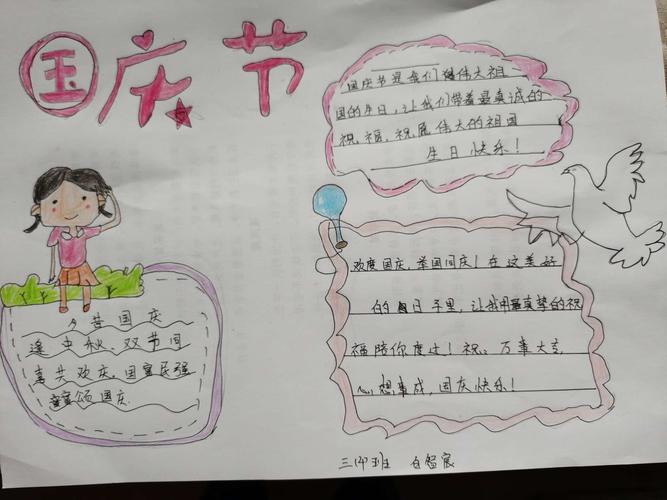 国庆节
国庆节是我们伟大祖
国的生日，让我们带着最真诚的
祝福，祝愿伟大的祖国
生日快乐！
欢度国庆，举国同庆！在这美好
的日子里，让我用最真挚的祝
福陪你度过！祝：万事大吉，
心想事成，国庆快乐！
今昔国庆
逢中秋，双节同
喜共欢庆，国富民强
颂国庆
三(4)班 白智宸